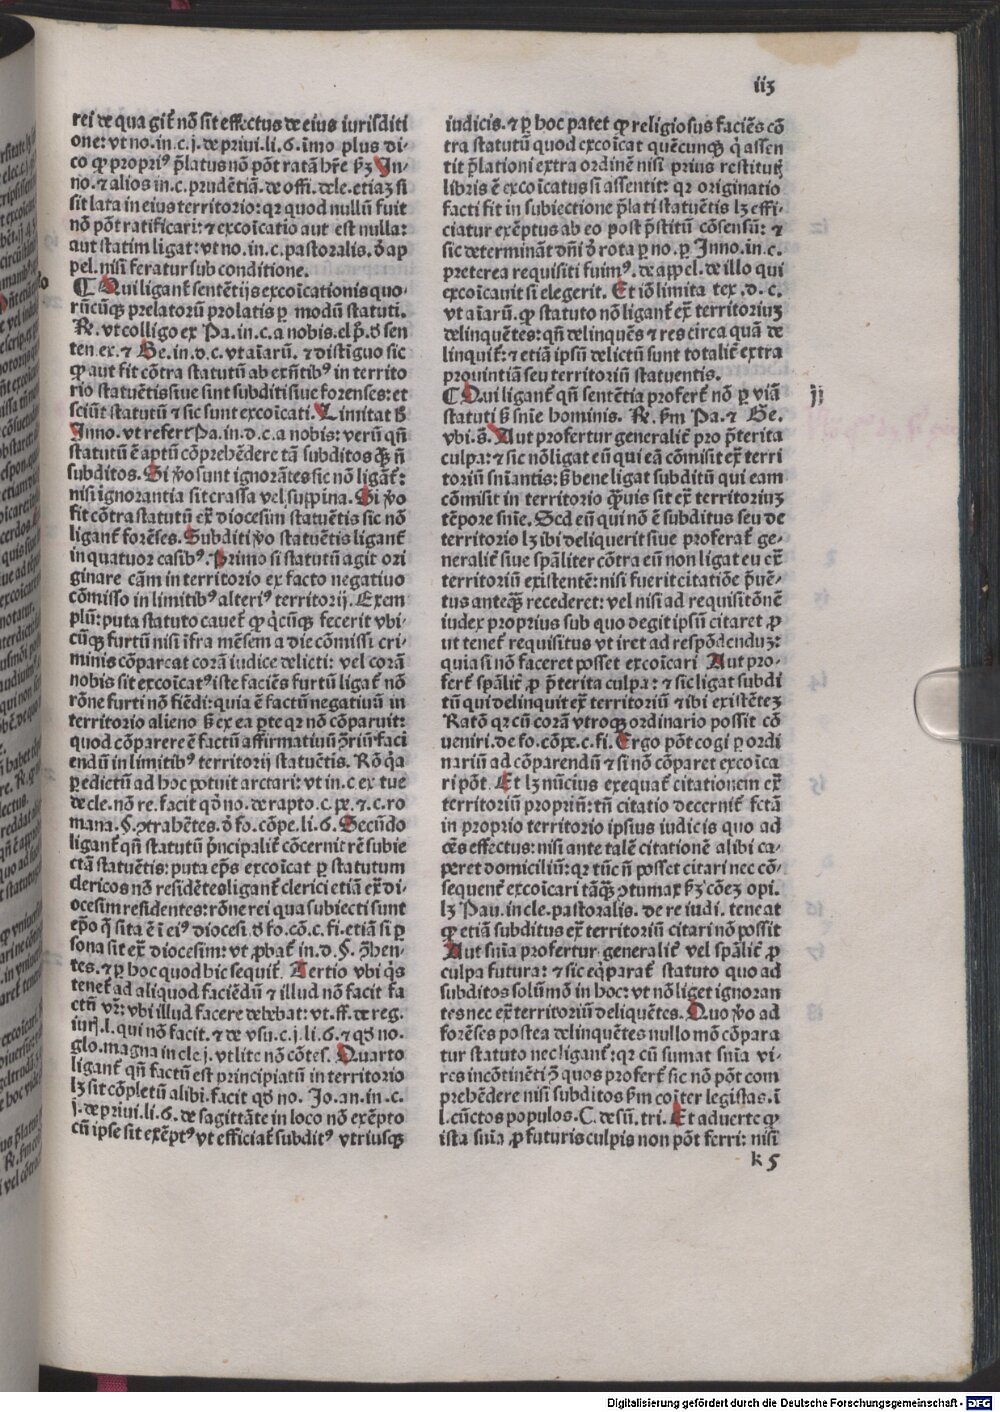 113
rei de qua git̃ nõ sit effectus de eius iurisditi
one: vt no. in. c. j. de priui. li. 6. imo plus di-
co ꝙ propri⁹ p̃latus nõ põt ratã hr̃e ẜm In-
no. ⁊ alios in. c. prudẽtiã. de offi. dele. etiaz si
sit lata in eius territorio: qr quod nullũ fuit
nõ põt ratificari: ⁊ excoĩcatio aut est nulla:
aut statim ligat: vt no. in. c. pastoralis. ð ap
pel. nisi feratur sub conditione.
¶ Qui ligant̃ sentẽtijs excoĩcationis quo-
rũcũqꝫ prelatorũ prolatis ꝑ modũ statuti.
R̃. vt colligo ex Pa. in. c. a nobis. el p̃. ð sen
ten ex. ⁊ Ge. in. d. c. vt aĩarũ. ⁊ distĩguo sic
ꝙ aut fit cõtra statutũ ab exñtib⁹ in territo
rio statuẽtis siue sint subditi siue forenses: et
sciũt statutũ ⁊ sic sunt excoĩcati. Limitat ħ
Inno. vt refert Pa. in. d. c. a nobis: verũ qñ
statutũ ẽ aptũ cõprehẽdere tã subditos qꝫ̃ ñ
subditos. Si ṽo sunt ignorãtes sic nõ ligãt̃:
nisi ignorantia sit crassa vel supp̃ina. Si ṽo
fit cõtra statutũ ex̃ diocesim statuẽtis sic nõ
ligant̃ forẽses. Subditi ṽo statuẽtis ligant̃
in quatuor casib⁹. Primo si statutũ agit ori
ginare cãm in territorio ex facto negatiuo
cõmisso in limitib⁹ alteri⁹ territorij. Exem
plũ: puta statuto cauet̃ ꝙ q̃cũqꝫ fecerit vbi-
cũqꝫ furtũ nisi ĩfra mẽsem a die cõmissi cri-
minis cõpareat corã iudice delicti: vel corã
nobis sit excoĩcat⁹ iste faciẽs furtũ ligat̃ nõ
rõne furti nõ fiẽdi: quia ẽ factũ negatiuũ in
territorio alieno ẜ ex ea ꝑte qr nõ cõparuit:
quod cõparere ẽ factũ affirmatiuũ ꝯ̃riũ faci
endũ in limitib⁹ territorij statuẽtis. Rõ q̃a
ꝑ edictũ ad hoc potuit arctari: vt in. c ex tue
de cle. nõ re. facit qð no. de rapto. c. ꝑe. ⁊ .c. ro
mana. §. ꝯtrahẽtes. ð fo. cõpe. li. 6. Secũdo
ligant̃ qñ statutũ p̃ncipalit̃ cõcernit rẽ subie
ctã statuẽtis: puta ep̃s excoĩcat ꝑ statutum
clericos nõ residẽtes ligant̃ clerici etiã ex̃ di-
ocesim residentes: rõne rei qua subiecti sunt
ep̃o q̃ sita ẽ ĩ ei⁹ diocesi. ð fo. cõ. c. fi. etiã si ꝑ
sona sit ex̃ diocesim: vt ꝓbat̃ in. d. §. ꝯ̃hen-
tes. ⁊ ꝑ hoc quod hic sequit̃. Tertio vbi q̃s
tenet̃ ad aliquod faciẽdũ ⁊ illud nõ facit fa
ctũ vr̃: vbi illud facere debebat: vt. ff. de reg.
iurj. l. qui nõ facit. ⁊ de vsu. c. j. li. 6. ⁊ qð no.
glo. magna in cle. j. vt lite nõ cõtes̃. Quarto
ligant̃ qñ factũ est principiatũ in territorio
lꝫ sit cõpletũ alibi. facit qð no. Jo. an. in. c.
j. de priui. li. 6. de sagittãte in loco nõ exẽpto
cũ ipse sit exẽpt⁹ vt efficiat̃ subdit⁹ vtriusqꝫ
iudicis. ⁊ ꝑ hoc patet ꝙ religiosus faciẽs cõ
tra statutũ quod excoĩcat quẽcunqꝫ q̃ assen
tit p̃lationi extra ordinẽ nisi prius restitut̃
libris ẽ excoĩcatus si assentit: qr originatio
facti fit in subiectione p̃lati statuẽtis lꝫ effi-
ciatur exẽptus ab eo post p̃stitũ cõsensũ: ⁊
sic determinãt dñi ð rota ꝑ no. ꝑ Inno. in. c.
preterea requisiti fuim⁹. de appel. de illo qui
excoĩcauit si elegerit. Et iõ limita tex. d. c.
vt aĩarũ. ꝙ statuto nõ ligant̃ ex̃ territoriuz
delinquẽtes: qñ delinquẽs ⁊ res circa quã de
linquit̃: ⁊ etiã ipsũ delictũ sunt totalit̃ extra
prouintiã seu territoriũ statuentis.
¶ Qui ligant̃ qñ sentẽtia profert̃ nõ ꝑ viã
statuti ẜ snĩe hominis. R̃. ẜm Pa. ⁊ Ge.
vbi. s̃. Aut profertur generalit̃ pro p̃terita
culpa: ⁊ sic nõ ligat eũ qui eã cõmisit ex̃ terri
toriũ snĩantis: ẜ bene ligat subditũ qui eam
cõmisit in territorio ꝙ̃uis sit ex̃ territoriuz
tẽpore snĩe. Sed eũ qui nõ ẽ subditus seu de
territorio lꝫ ibi deliquerit siue proferat̃ ge-
neralit̃ siue sp̃aliter cõtra eũ non ligat eu ex̃
territoriũ existentẽ: nisi fuerit citatiõe p̃uẽ-
tus anteqꝫ̃ recederet: vel nisi ad requisitõnẽ
iudex proprius sub quo degit ipsũ citaret ꝓ
ut tenet̃ requisitus vt iret ad respõdenduz:
quia si nõ faceret posset excoĩcari Aut pro-
fert̃ sp̃alit̃ ꝓ p̃terita culpa: ⁊ sic ligat subdi
tũ qui delinquit ex̃ territoriũ ⁊ ibi existẽtez
Ratõ qr cũ corã vtroqꝫ ordinario possit cõ
ueniri. de fo. cõpe. c. fi. Ergo põt cogi ꝑ ordi
nariũ ad cõparendũ ⁊ si nõ cõparet excoĩca
ri põt. Et lꝫ nũcius exequat̃ citationem ex̃
territoriũ propriũ: tñ citatio decernit̃ fctã
in proprio territorio ipsius iudicis quo ad
cẽs effectus: nisi ante talẽ citationẽ alibi ca-
peret domiciliũ: qr tũc ñ posset citari nec cõ-
sequent̃ excoĩcari tãqꝫ̃ ꝯtumax ẜm cõez opi.
lꝫ Pau. in cle. pastoralis. de re iudi. teneat
ꝙ etiã subditus ex̃ territoriũ citari nõ possit
Aut snĩa profertur generalit̃ vel sp̃alit̃ ꝓ
culpa futura: ⁊ sic eq̃parat̃ statuto quo ad
subditos solũmõ in hoc: vt nõ liget ignoran
tes nec ex̃ territoriũ deliquẽtes. Quo ṽo ad
forẽses postea delinquẽtes nullo mõ cõpara
tur statuto nec ligant̃: qr cũ sumat snĩa vi-
res incõtinẽti ꝯ̃ quos profert̃ sic nõ põt com
prehẽdere nisi subditos ẜm coĩter legistas. ĩ
l. cũctos populos. C. de sũ. tri. Et aduerte ꝙ
ista snĩa ꝓ futuris culpis non põt ferri: nisi
k 5
jj
Digitalisierung gefördert durch die Deutsche Forschungsgemeinschaft - DFG